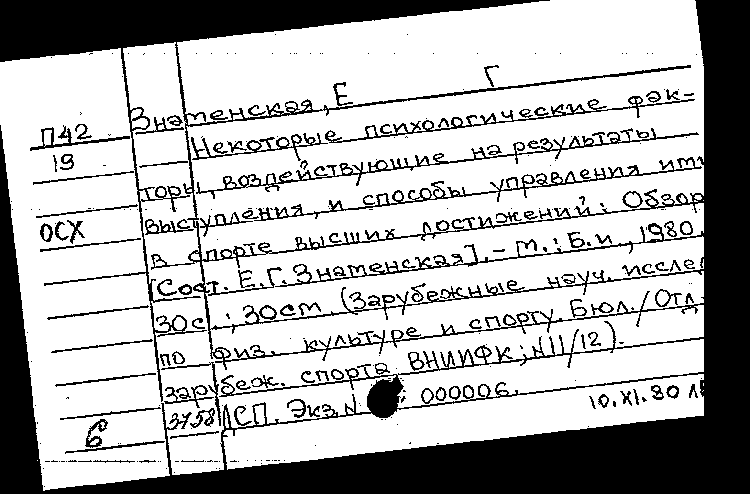 Знаменская, Е Г
П42 Некоторые психологические фак-
19 торы, воздействующие на результаты
выступления, и способы управления ими
ОСХ в спорте высших достижений: Обзор
[Сост. Е.Г. Знаменская]. – М.: Б.и., 1980.
30с.; 30см. (Зарубежные науч. исслед
по физ. культуре и спорту. Бюл./Отд.
зарубеж. спорта ВНИИФК; N11/12).
3758 ДСП. Экз. N 000006.
6 10.XI.80